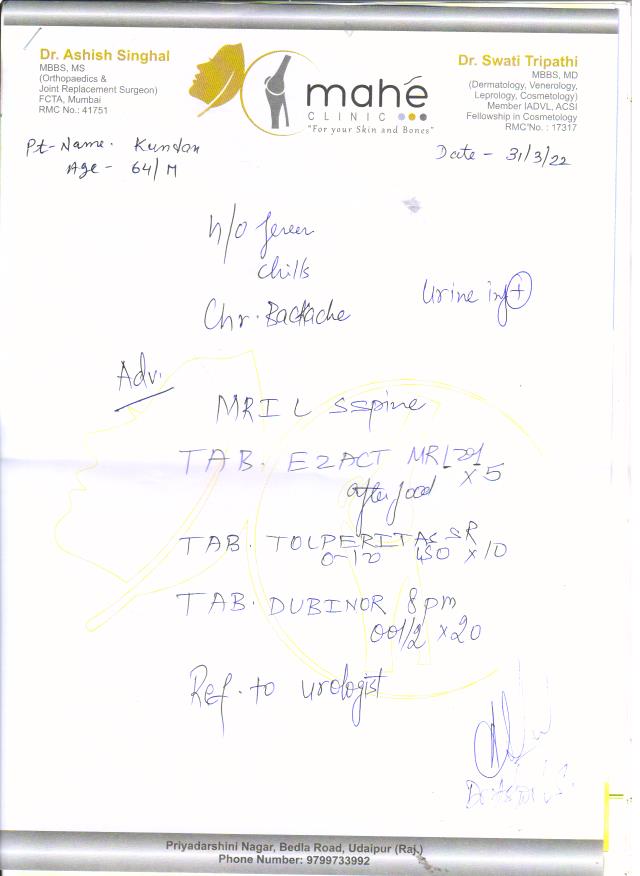 Dr. Ashish Singhal
MBBS, MS
(Orthopaedics &
Joint Replacement Surgeon)
FCTA, Mumbai
RMC No.: 41751
mahé
CLINIC
"For your Skin and Bones"
Dr. Swati Tripathi
MBBS, MD
(Dermatology, Venerology,
Leprology, Cosmetology)
Member IADVL, ACSI
Fellowship in Cosmetology
RMC No. : 17317
Pt-Name. Kundan
Age - 64/M
Date - 31/3/22
h/o fever
chills
Chr. Backache
Urine inf +
Adv.
MRI L SSpine
TAB. EZACT MR
after food x5
TAB. TOLPERITAS SR
450 x10
TAB. DUBINOR 8pm
001/2 x20
Ref. to urologist
Priyadarshini Nagar, Bedla Road, Udaipur (Raj.)
Phone Number: 9799733992